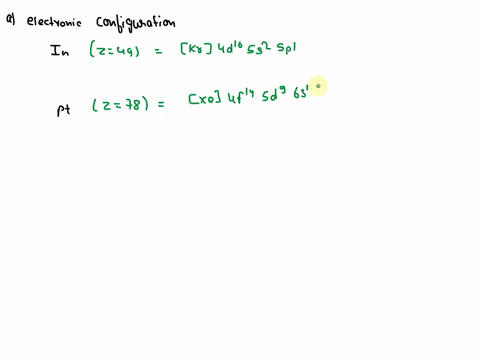 a) electronic configuration
In (z=49) = [Kr] 4d¹⁰ 5s² 5p1
pt (z=78) = [Xe] 4f¹⁴ 5d⁹ 6s¹